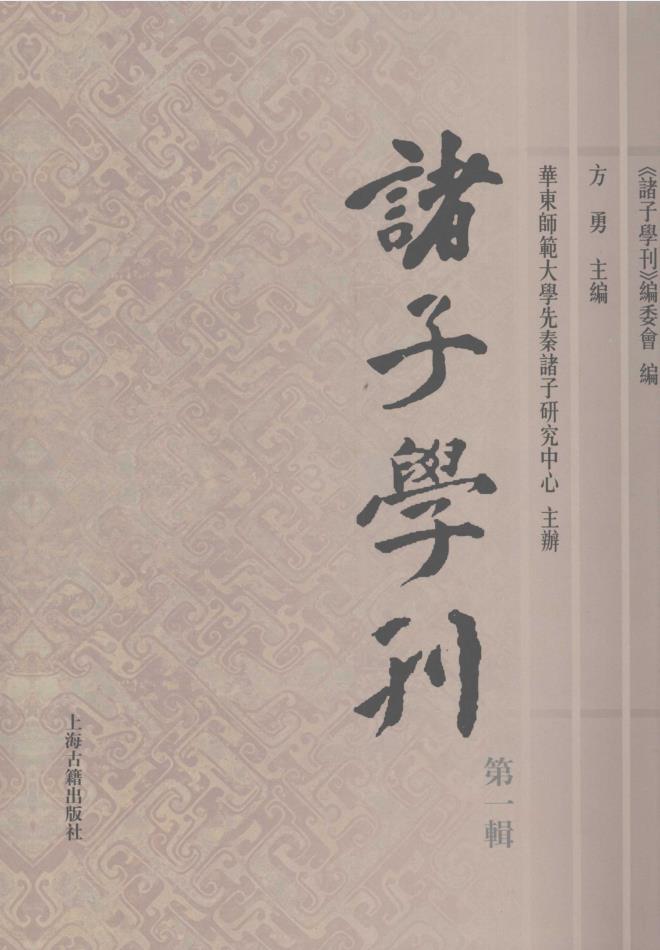 《諸子學刊》編委會 編
方 勇 主編
華東師範大學先秦諸子研究中心 主辦
諸子學刊
第一輯
上海古籍出版社